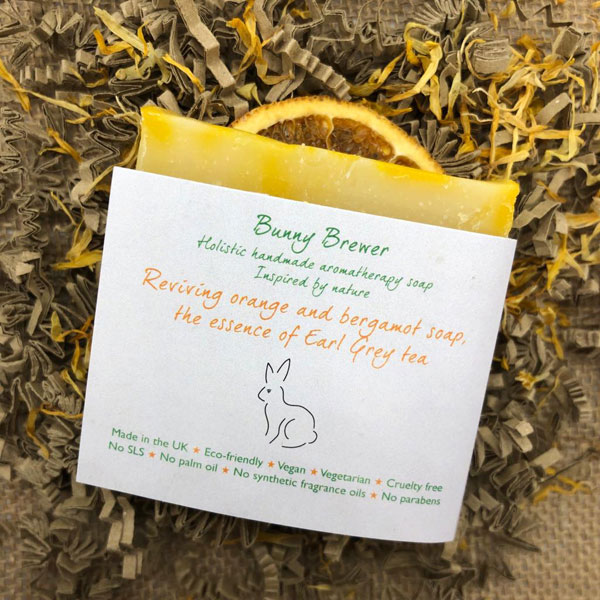 Bunny Brewer
Holistic handmade aromatherapy soap
Inspired by nature
Reviving orange and bergamot soap,
the essence of Earl Grey tea
Made in the UK ★ Eco-friendly ★ Vegan ★ Vegetarian ★ Cruelty free
No SLS ★ No palm oil ★ No synthetic fragrance oils ★ No parabens